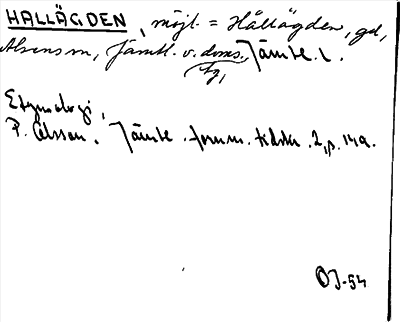 HALLÄGDEN, möjl. = Hållägden, gd,
Alsens sn, Jämtl. v. doms., Jämtl. l.
tg,
Etymologi,
P. Olsson. Jämtl. fornm. tidskr. 2, s. 149.
OJ-54